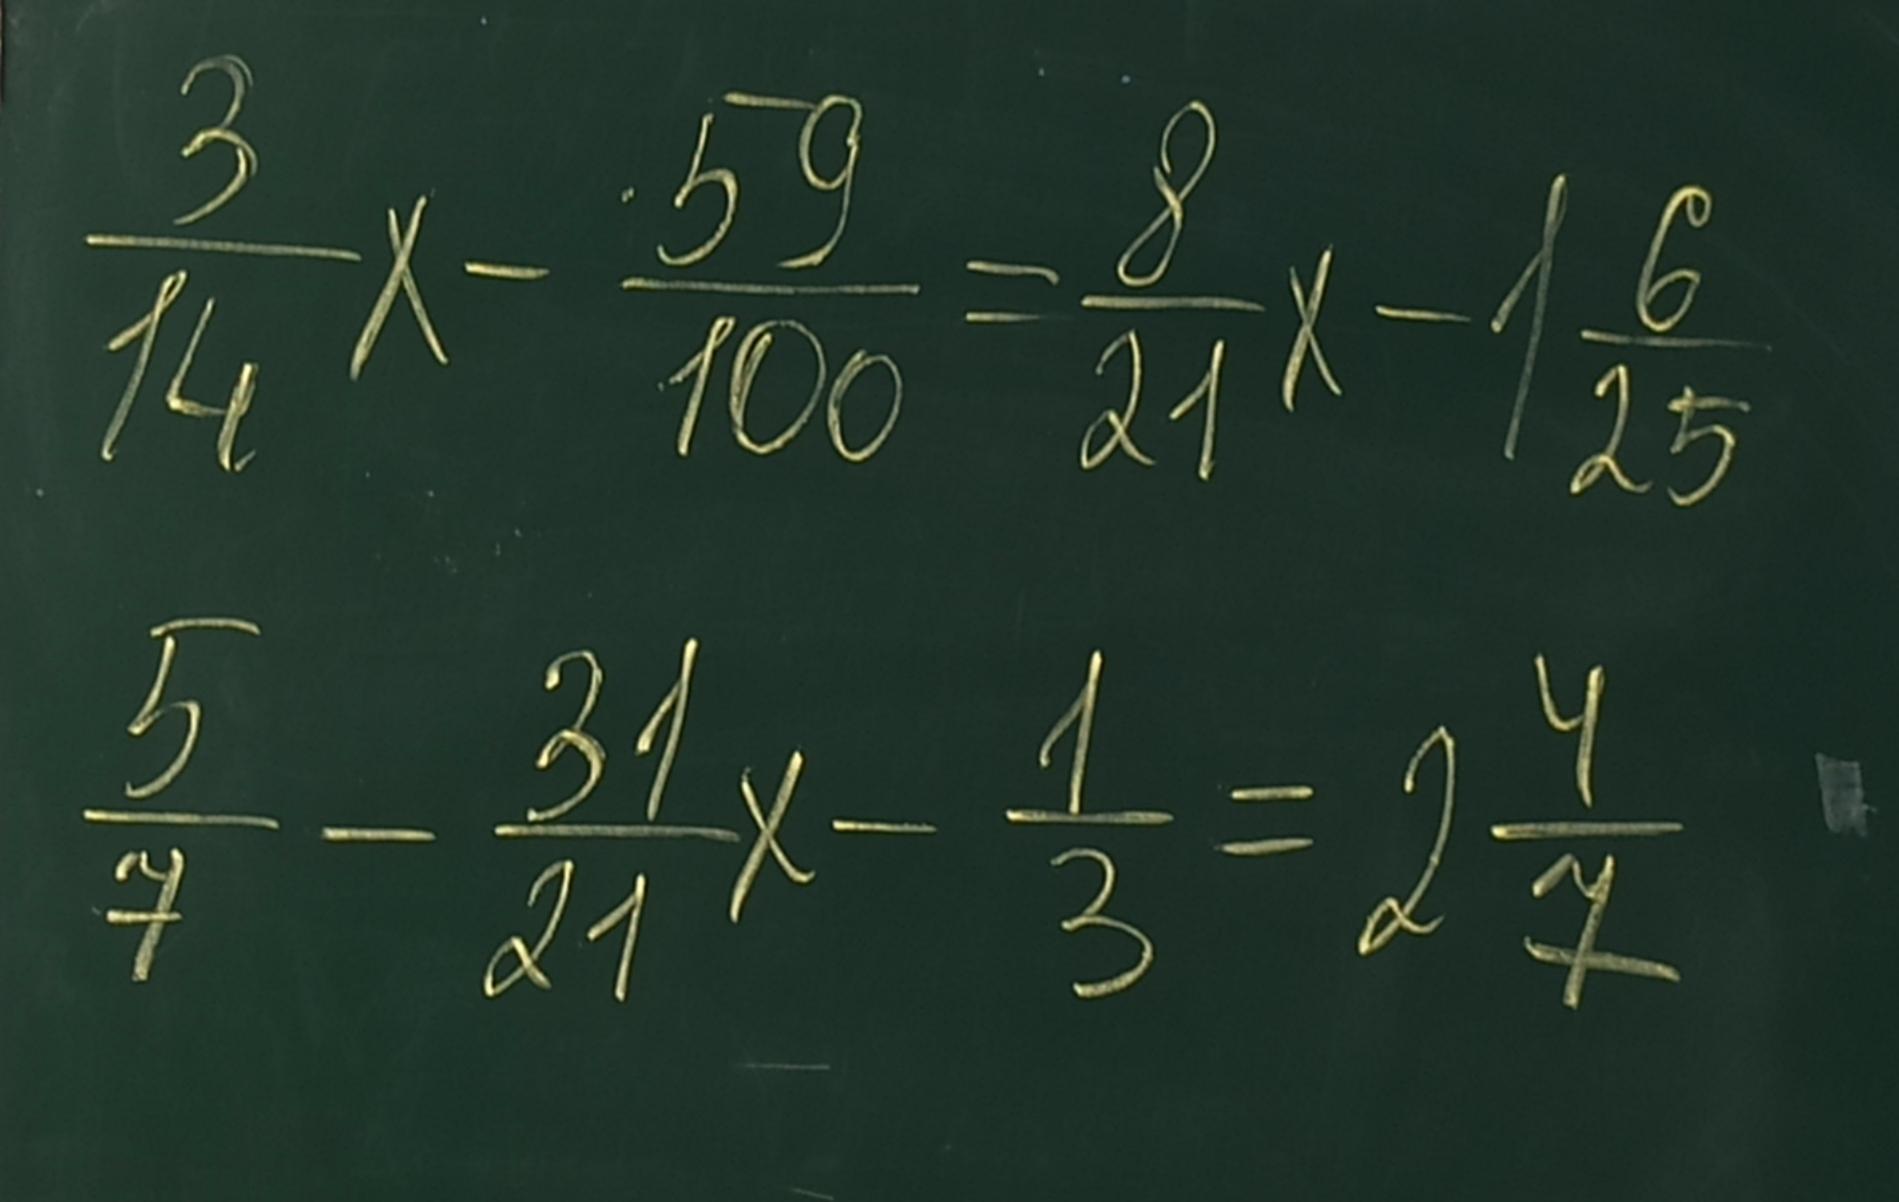 3/14 x - 59/100 = 8/21 x - 1 6/25
5/7 - 31/21 x - 1/3 = 2 4/7